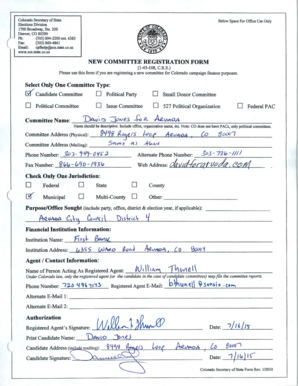 Colorado Secretary of State
Elections Division
1700 Broadway, Ste. 200
Denver, CO 80290
Ph: (303) 894-2200 ext. 6383
Fax: (303) 869-4861
Email: cpfhelp@sos.state.co.us
www.sos.state.co.us
Below Space For Office Use Only
NEW COMMITTEE REGISTRATION FORM
(1-45-108, C.R.S.)
Please use this form if you are registering a new committee for Colorado campaign finance purposes.
Select Only One Committee Type:
Candidate Committee Political Party Small Donor Committee
Political Committee Issue Committee 527 Political Organization Federal PAC
Committee Name: David Jones for Arvada
Committee Address (Physical): 8498 Rogers Loop Arvada, CO 80007
Committee Address (Mailing): Same as Above
Phone Number: Alternate Phone Number: 303-736-1111
Fax Number: 866-690-1936 Web Address:
Check Only One Jurisdiction:
Federal State County
Municipal Multi-County Other:
Purpose/Office Sought (include party, office, district & election year, if applicable):
Arvada City Council District 4
Financial Institution Information:
Institution Name: First Bank
Institution Address: 6355 Ward Road Arvada, CO
Agent / Contact Information:
Name of Person Acting as Registered Agent: William Thunell
Under Colorado law, only the registered agent (or the candidate in the case of candidate committees) may file the committee reports.
Phone Number: Registered Agent E-Mail:
Alternate E-Mail 1:
Alternate E-Mail 2:
Authorization
Registered Agent's Signature: Date: 7/16/15
Print Candidate Name: David Jones
Candidate Address (include mailing): 8498 Rogers Loop Arvada, CO 80007
Candidate Signature: Date: 7/16/15
Colorado Secretary of State Form Rev.